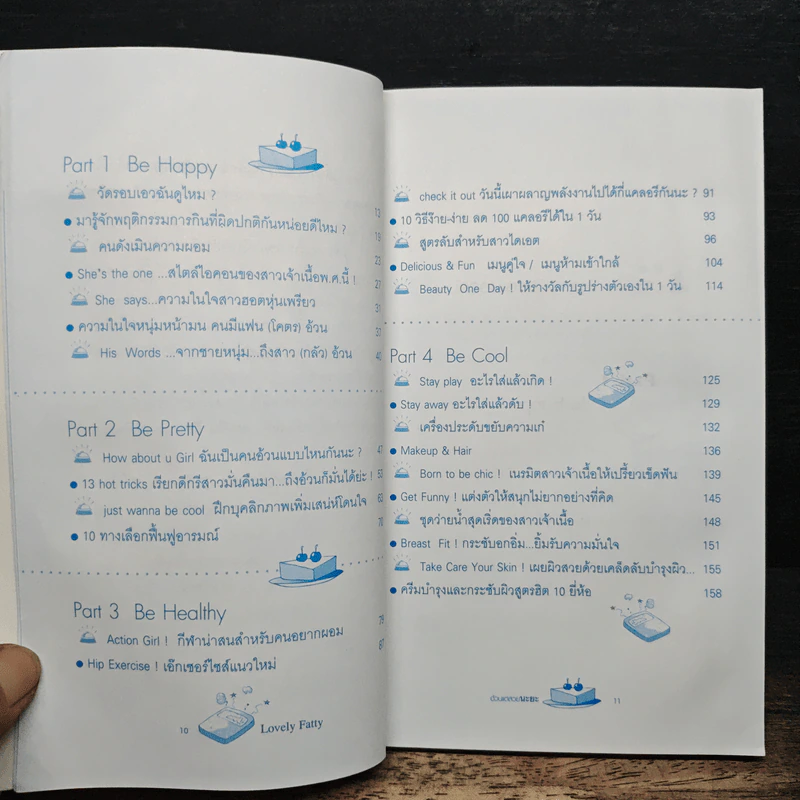 Part 1 Be Happy
วัดรอบเอวฉันดูไหม ? 13
มารู้จักพฤติกรรมการกินที่ผิดปกติกันหน่อยดีไหม ? 19
คนดังเมินความผอม 23
She's the one ...สไตล์ไอคอนของสาวเจ้าเนื้อพ.ศ.นี้ ! 27
She says...ความในใจสาวฮอตหุ่นเพรียว 31
ความในใจหนุ่มหน้ามน คนมีแฟน (โคตร) อ้วน 37
His Words ...จากชายหนุ่ม...ถึงสาว (กลัว) อ้วน 40
Part 2 Be Pretty
How about u Girl ฉันเป็นคนอ้วนแบบไหนกันนะ ? 47
13 hot tricks เรียกดีกรีสาวมั่นคืนมา...ถึงอ้วนก็มั่นได้ย่ะ ! 53
just wanna be cool ฝึกบุคลิกภาพเพิ่มเสน่ห์โดนใจ 63
10 ทางเลือกฟื้นฟูอารมณ์ 70
Part 3 Be Healthy
Action Girl ! กีฬาน่าสนสำหรับคนอยากผอม 79
Hip Exercise ! เอ็กเซอร์ไซส์แนวใหม่ 87
10 Lovely Fatty
check it out วันนี้เผาผลาญพลังงานไปได้กี่แคลอรีกันนะ ? 91
10 วิธีง๊าย-ง่าย ลด 100 แคลอรีได้ใน 1 วัน 93
สูตรลับสำหรับสาวไดเอต 96
Delicious & Fun เมนูคู่ใจ / เมนูห้ามเข้าใกล้ 104
Beauty One Day ! ให้รางวัลกับรูปร่างตัวเองใน 1 วัน 114
Part 4 Be Cool
Stay play อะไรใส่แล้วเกิด ! 125
Stay away อะไรใส่แล้วดับ ! 129
เครื่องประดับขยับความเก๋ 132
Makeup & Hair 136
Born to be chic ! เนรมิตสาวเจ้าเนื้อให้เปรี้ยวเข็ดฟัน 139
Get Funny ! แต่งตัวให้สนุกไม่ยากอย่างที่คิด 145
ชุดว่ายน้ำสุดเริ่ดของสาวเจ้าเนื้อ 148
Breast Fit ! กระชับอกอิ่ม...ยิ้มรับความมั่นใจ 151
Take Care Your Skin ! เผยผิวสวยด้วยเคล็ดลับบำรุงผิว... 155
ครีมบำรุงและกระชับผิวสูตรฮิต 10 ยี่ห้อ 158
อ้วนแต่สวยนะยะ 11